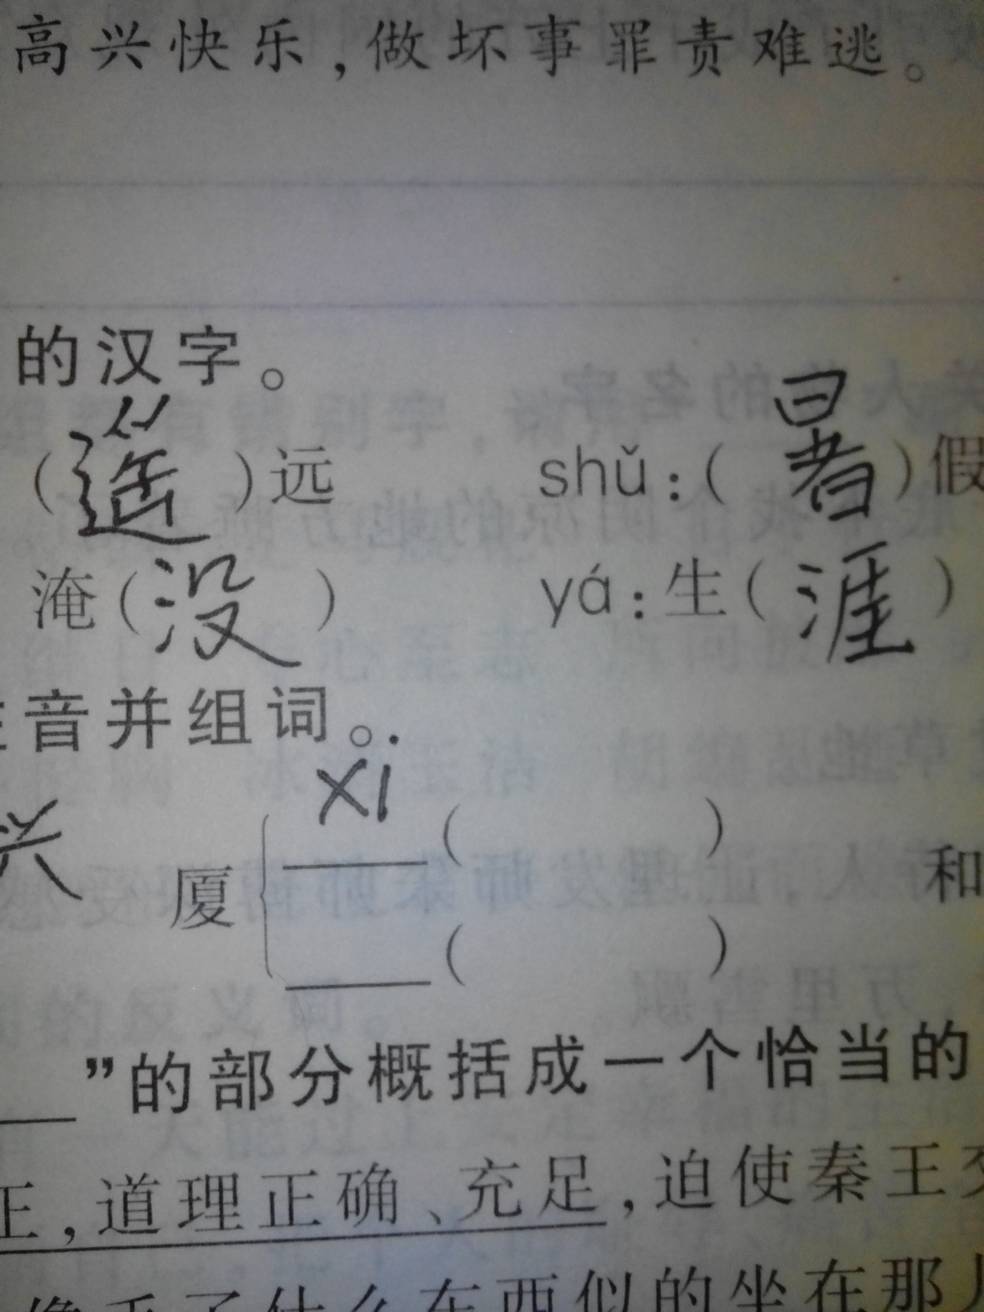 高兴快乐，做坏事罪责难逃。
的汉字。
（遥）远 shǔ：（暑）假
淹（没） yá：生（涯）
音并组词。
兴
厦 xi（ ） 和
（ ）
”的部分概括成一个恰当的
正，道理正确、充足，迫使秦王交
什么东西似的坐在那儿